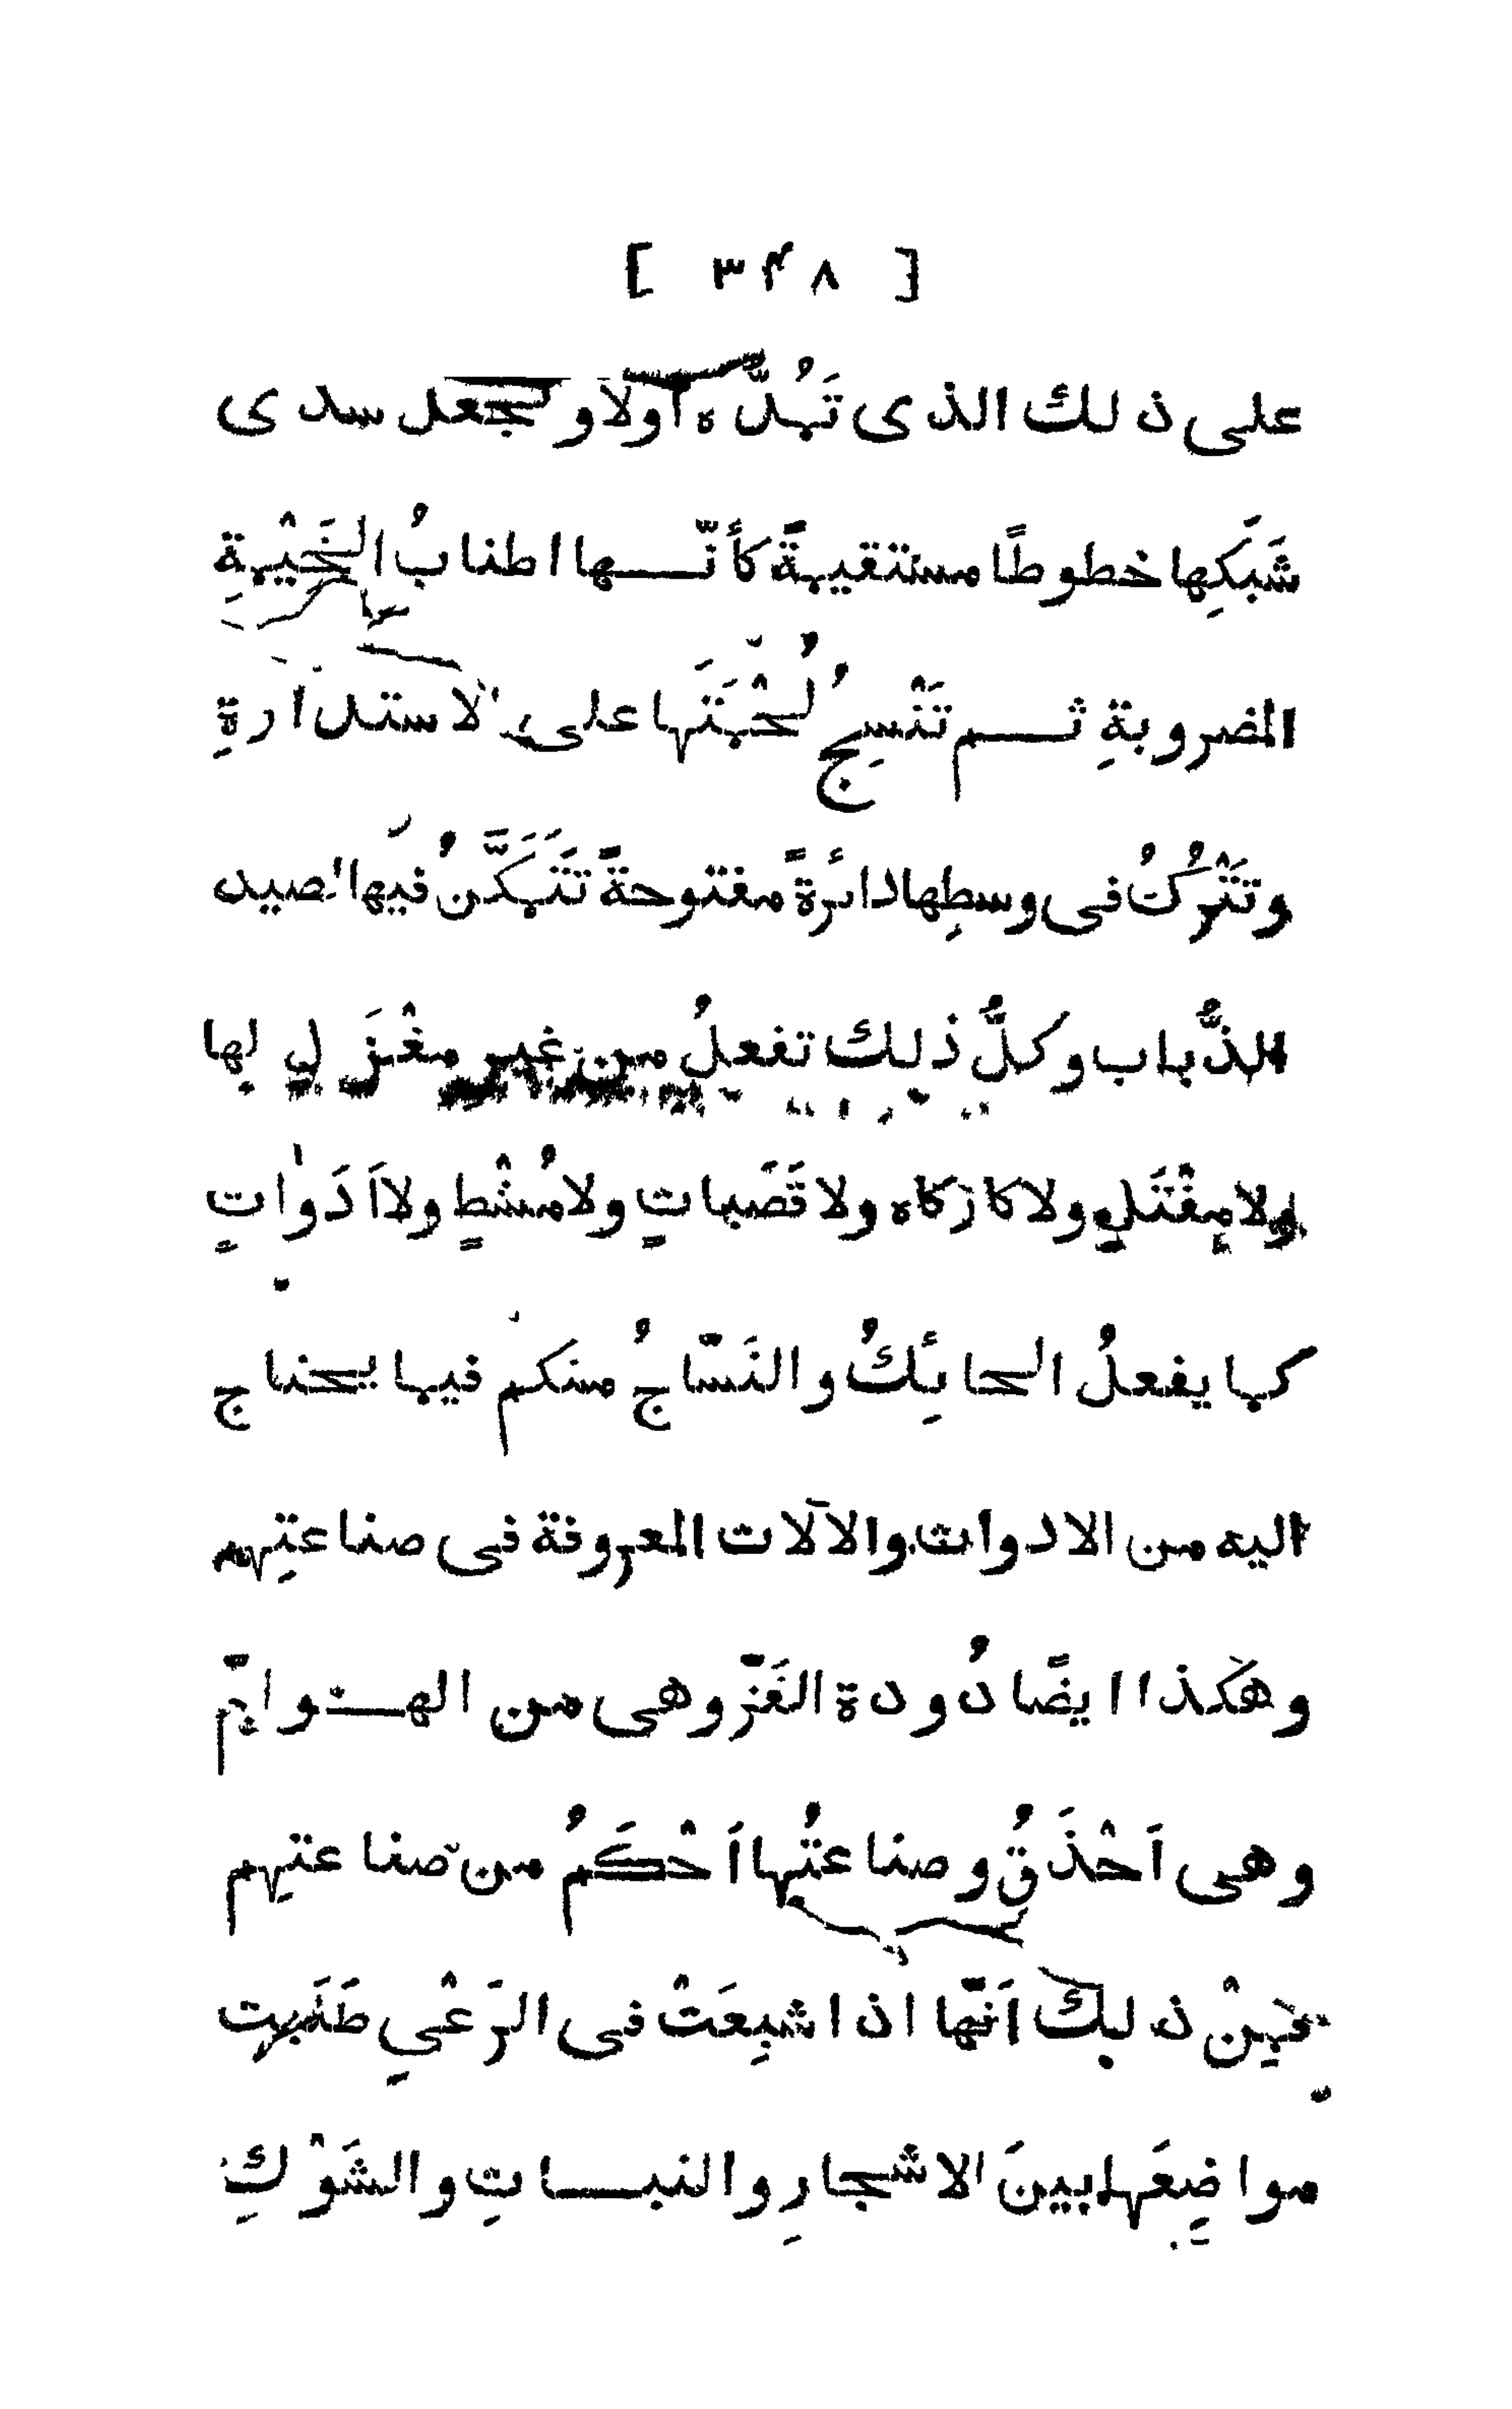 [ ٣٤٨ ]
على ذلك الذى تَمُدُّه اولا وتجعل سدى
شَبَكِها خطوطًا مستقيمةً كأنّها اطنابُ الخَيْمةِ
المضروبةِ ثم تَنْسِجُ لُحْمَتَها على الاستدارةِ
وتَتْرُكُ فى وسطِها دائرةً مفتوحةً تَتَمَكَّنُ فيها لصيد
الذُّباب وكلُّ ذلك تفعلُ من غيرِ مِغْزَلٍ لها
ولا مِفْتَلٍ ولا كازكاه ولا قَصَباتٍ ولا مُشْطٍ ولا اَدَواتٍ
كما يفعلُ الحائِكُ والنَسّاجُ منكم فيما يحتاج
اليه من الادوات والآلات المعروفة فى صناعتِهم
وهكذا ايضًا دُودة القَزّ وهى من الهوامّ
وهى اَحْذَقُ وصناعتُها اَحْكَمُ من صناعتِهم
فمِنْ ذلك اَنّها اذا شبِعَتْ فى الرَعْىِ طَلَبت
مواضِعَها بينَ الاشجارِ والنباتِ والشَوْكِ